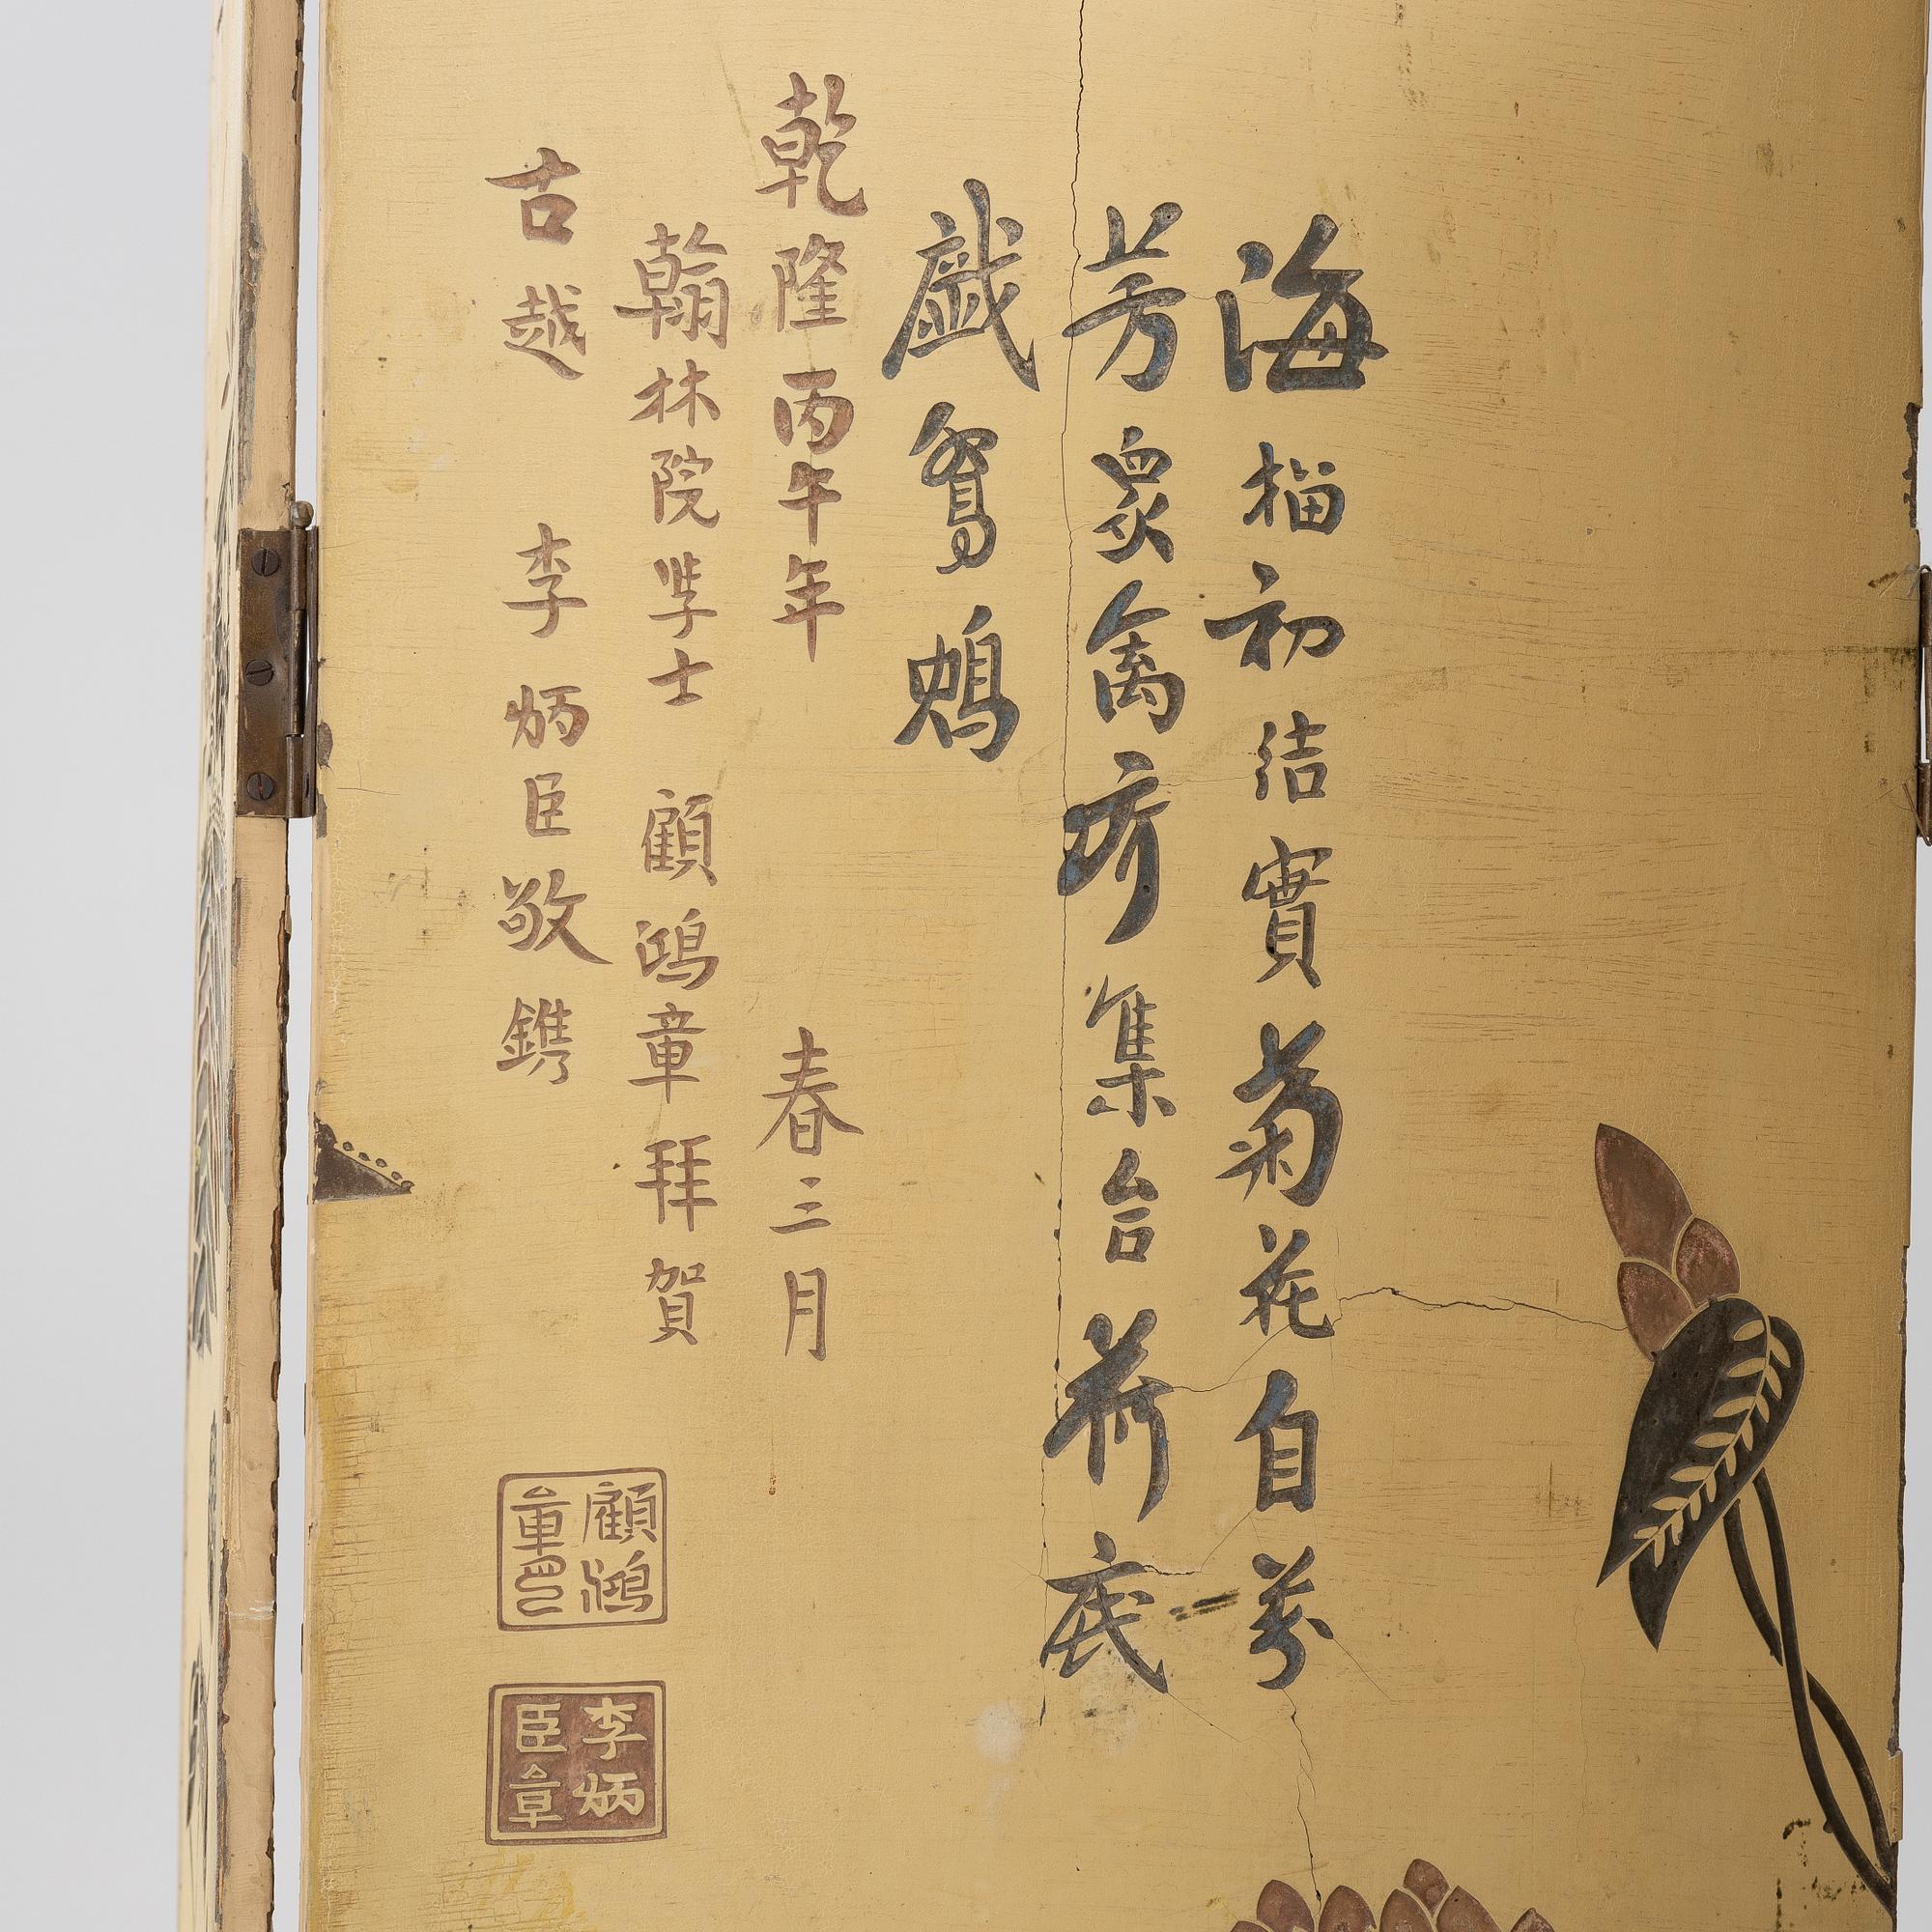 海榴初结實菊花自芬
芳眾禽欣集台荷底
戯鴛鴦
乾隆丙午年 春三月
翰林院學士 顧鴻章拜賀
古越 李炳臣敬鐫
顧鴻章印
李炳臣章